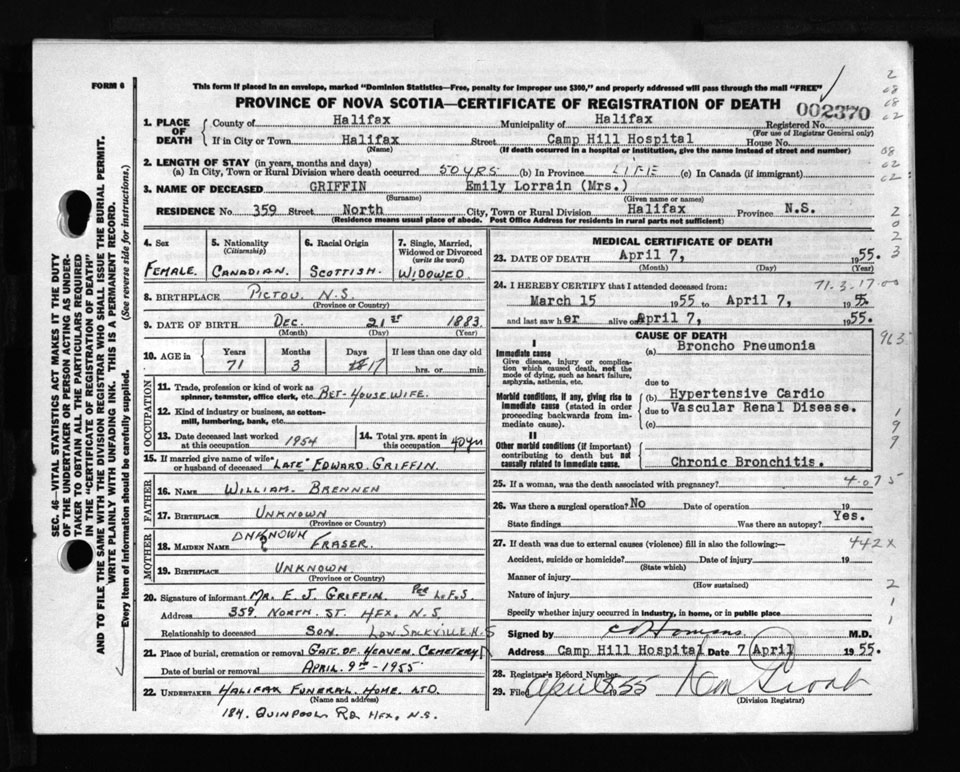 FORM 6
This form if placed in an envelope, marked "Dominion Statistics—Free, penalty for improper use $300," and properly addressed will pass through the mail "FREE"
PROVINCE OF NOVA SCOTIA—CERTIFICATE OF REGISTRATION OF DEATH
002370
SEC. 46—VITAL STATISTICS ACT MAKES IT THE DUTY
OF THE UNDERTAKER OR PERSON ACTING AS UNDER-
TAKER TO OBTAIN ALL THE PARTICULARS REQUIRED
IN THE "CERTIFICATE OF REGISTRATION OF DEATH"
AND TO FILE THE SAME WITH THE DIVISION REGISTRAR WHO SHALL ISSUE THE BURIAL PERMIT.
WRITE PLAINLY WITH UNFADING INK. THIS IS A PERMANENT RECORD.
Every item of information should be carefully supplied. (See reverse side for instructions.)
1. PLACE OF DEATH
County of Halifax Municipality of Halifax Registered No.
(For use of Registrar General only)
If in City or Town Halifax Street Camp Hill Hospital House No.
(Name) (If death occurred in a hospital or institution, give the name instead of street and number)
2. LENGTH OF STAY (in years, months and days)
(a) In City, Town or Rural Division where death occurred 50 YRS (b) In Province LIFE (c) In Canada (if immigrant)
3. NAME OF DECEASED GRIFFIN Emily Lorrain (Mrs.)
(Surname) (Given name or names)
RESIDENCE No. 359 Street North City, Town or Rural Division Halifax Province N.S.
(Residence means usual place of abode. Post Office Address for residents in rural parts not sufficient)
4. Sex
FEMALE.
5. Nationality
(Citizenship)
CANADIAN.
6. Racial Origin
SCOTTISH.
7. Single, Married,
Widowed or Divorced
(write the word)
WIDOWED
8. BIRTHPLACE PICTOU. N.S.
(Province or Country)
9. DATE OF BIRTH DEC. 21st 1883.
(Month) (Day) (Year)
10. AGE in
Years Months Days If less than one day old
71 3 17 hrs. or min.
OCCUPATION
11. Trade, profession or kind of work as
spinner, teamster, office clerk, etc. RET-HOUSE WIFE.
12. Kind of industry or business, as cotton-
mill, lumbering, bank, etc.
13. Date deceased last worked
at this occupation 1954
14. Total yrs. spent in
this occupation 40 yrs
15. If married give name of wife
or husband of deceased LATE EDWARD GRIFFIN.
FATHER
16. NAME WILLIAM. BRENNEN
17. BIRTHPLACE UNKNOWN
(Province or Country)
MOTHER
18. MAIDEN NAME UNKNOWN FRASER.
19. BIRTHPLACE UNKNOWN
(Province or Country)
20. Signature of informant MR. E. J. GRIFFIN. Per L.F.S.
Address 359 NORTH. ST. HFX. N.S.
Relationship to deceased SON. LOW. SACKVILLE N.S
21. Place of burial, cremation or removal GATE OF HEAVEN. CEMETERY
Date of burial or removal APRIL. 9th - 1955
22. UNDERTAKER HALIFAX FUNERAL. HOME. LTD.
(Name and address)
184. QUINPOOL RD HFX, N.S.
MEDICAL CERTIFICATE OF DEATH
23. DATE OF DEATH April 7, 1955.
(Month) (Day) (Year)
24. I HEREBY CERTIFY that I attended deceased from: 71.3.17.00
March 15 1955 to April 7, 1955.
and last saw her alive on April 7, 1955.
CAUSE OF DEATH
I
Immediate cause
Give disease, injury or complica-
tion which caused death, not the
mode of dying, such as heart failure,
asphyxia, asthenia, etc.
(a) Broncho Pneumonia
due to
Morbid conditions, if any, giving rise to
immediate cause (stated in order
proceeding backwards from im-
mediate cause).
(b) Hypertensive Cardio
due to Vascular Renal Disease.
(c)
II
Other morbid conditions (if important)
contributing to death but not
causally related to immediate cause.
Chronic Bronchitis.
25. If a woman, was the death associated with pregnancy?
26. Was there a surgical operation? No Date of operation 19
State findings Was there an autopsy? Yes.
27. If death was due to external causes (violence) fill in also the following:— 442X
Accident, suicide or homicide? Date of injury 19
(State which)
Manner of injury
(How sustained)
Nature of injury
Specify whether injury occurred in industry, in home, or in public place
Signed by M.D.
Address Camp Hill Hospital Date 7 April 1955.
28. Registrar's Record Number
29. Filed April 1955
(Division Registrar)